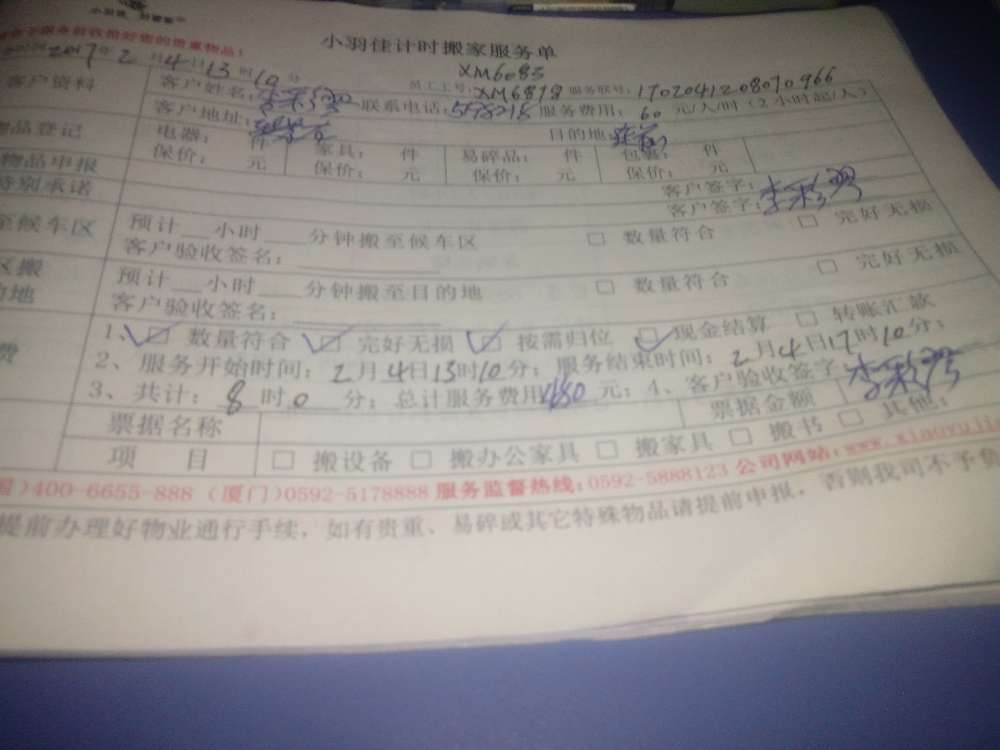 小羽佳计时搬家服务单
XM6085
2017年2月4日13时10分 员工工号:XM6878 服务联号:1702041208070966
客户资料 客户姓名: 联系电话: 服务费用:60元/人/时(2小时起/人)
客户地址: 目的地
物品登记 电器: 件 家具: 件 易碎品: 件 包裹: 件
保价: 元 保价: 元 保价: 元 保价: 元
物品申报 客户签字:
特别承诺 客户签字:李彩
至候车区 预计__小时___分钟搬至候车区 □ 数量符合 □ 完好无损
客户验收签名:
区搬 预计__小时___分钟搬至目的地 □ 数量符合 □ 完好无损
的地 客户验收签名:
费 1、☑ 数量符合 ☑ 完好无损 ☑ 按需归位 ☑ 现金结算 □ 转账汇款
2、服务开始时间:2月4日13时10分;服务结束时间:2月4日17时10分;
3、共计:8时0分;总计服务费用480元;4、客户验收签字:李彩
票据名称 票据金额
项 目 □ 搬设备 □ 搬办公家具 □ 搬家具 □ 搬书 □ 其他:
)400-6655-888 (厦门)0592-5178888 服务监督热线:0592-5888123 公司网站:www.xiaoyujia
提前办理好物业通行手续,如有贵重、易碎或其它特殊物品请提前申报,否则我司不予负